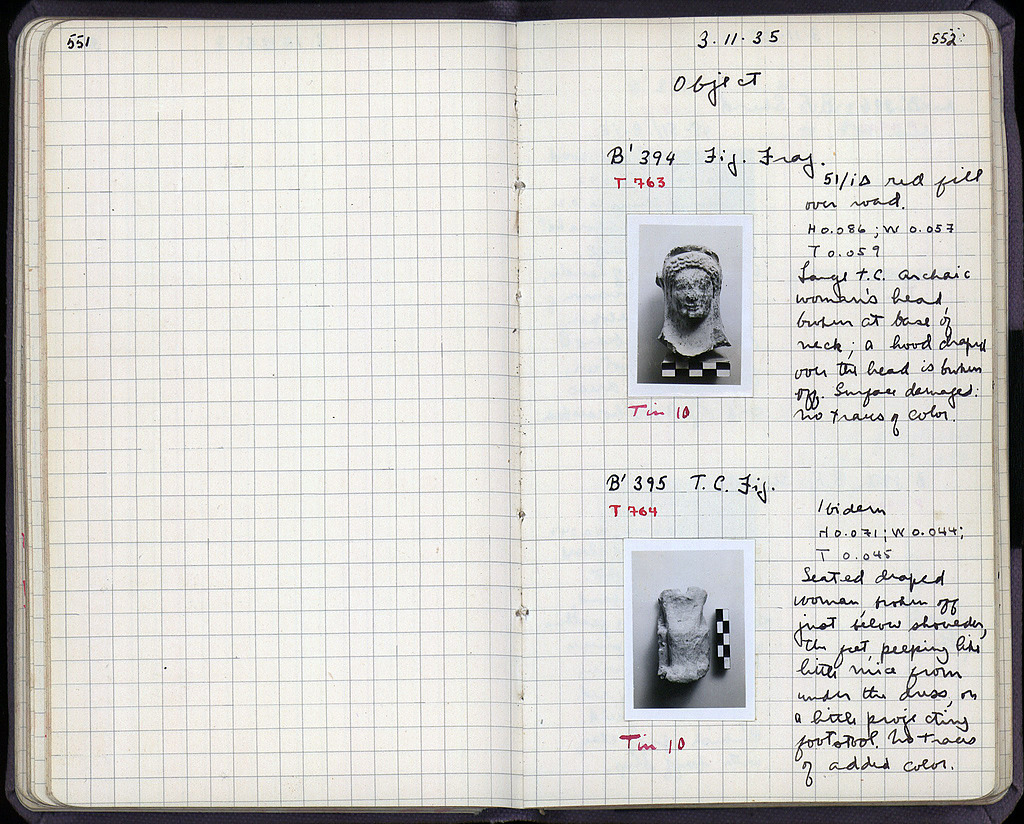 551
3·11·35
552
Object
B' 394 Fig. Frag.
T 763
51/iΔ red fill
over road.
H 0.086; W 0.057
T 0.059
Large t.c. archaic
woman's head
broken at base of
neck; a hood draped
over the head is broken
off. Surface damaged:
no traces of color.
Tin 10
B' 395 T.C. Fig.
T 764
Ibidem
H 0.071; W 0.044;
T 0.045
Seated draped
woman broken off
just below shoulders,
the feet peeping like
little mice from
under the dress, on
a little projecting
footstool. No traces
of added color.
Tin 10